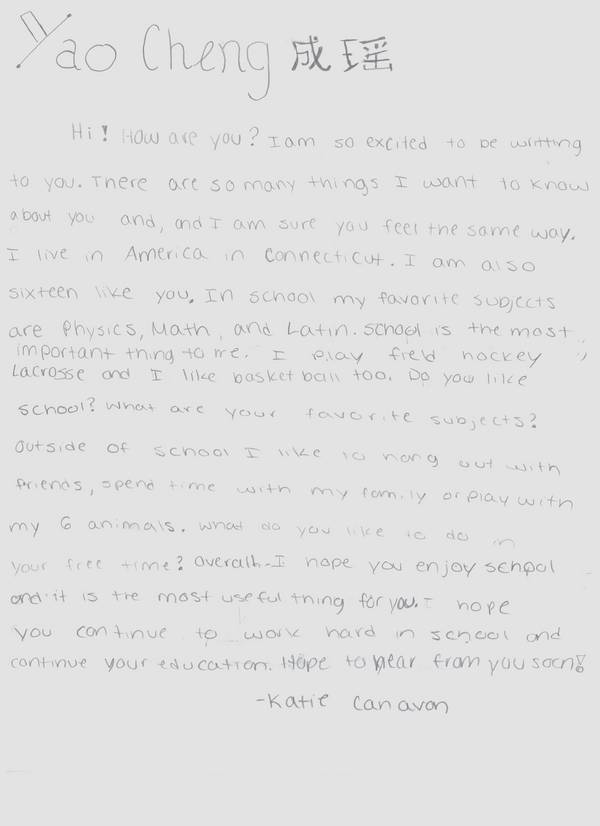 Yao Cheng 成瑶
Hi! How are you? I am so excited to be writting
to you. There are so many things I want to know
about you and, and I am sure you feel the same way.
I live in America in Connecticut. I am also
sixteen like you. In school my favorite subjects
are Physics, Math, and Latin. School is the most
important thing to me. I play field hockey,
Lacrosse and I like basketball too. Do you like
school? What are your favorite subjects?
Outside of school I like to hang out with
friends, spend time with my family or play with
my 6 animals. What do you like to do in
your free time? Overall, I hope you enjoy school
and it is the most useful thing for you. I hope
you continue to work hard in school and
continue your education. Hope to hear from you soon!
-Katie Canavan